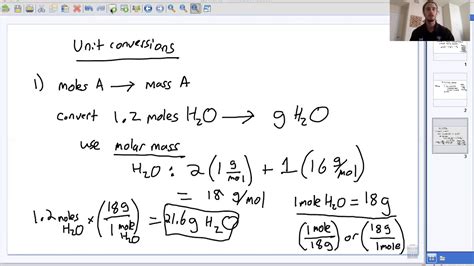 Unit conversions
1) moles A → mass A
convert 1.2 moles H₂O → g H₂O
use molar mass
H₂O : 2(1 g/mol) + 1(16 g/mol)
= 18 g/mol
1.2 moles H₂O × (18g / 1 mole H₂O) = 21.6g H₂O
1 mole H₂O = 18g
(1 mole / 18g) or (18g / 1 mole)